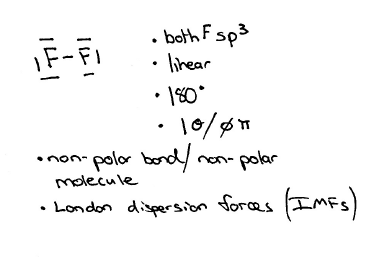 |F-F|
• both F sp³
• linear
• 180°
• 1σ/∅ π
• non-polar bond/non-polar
molecule
• London dispersion forces (IMFs)